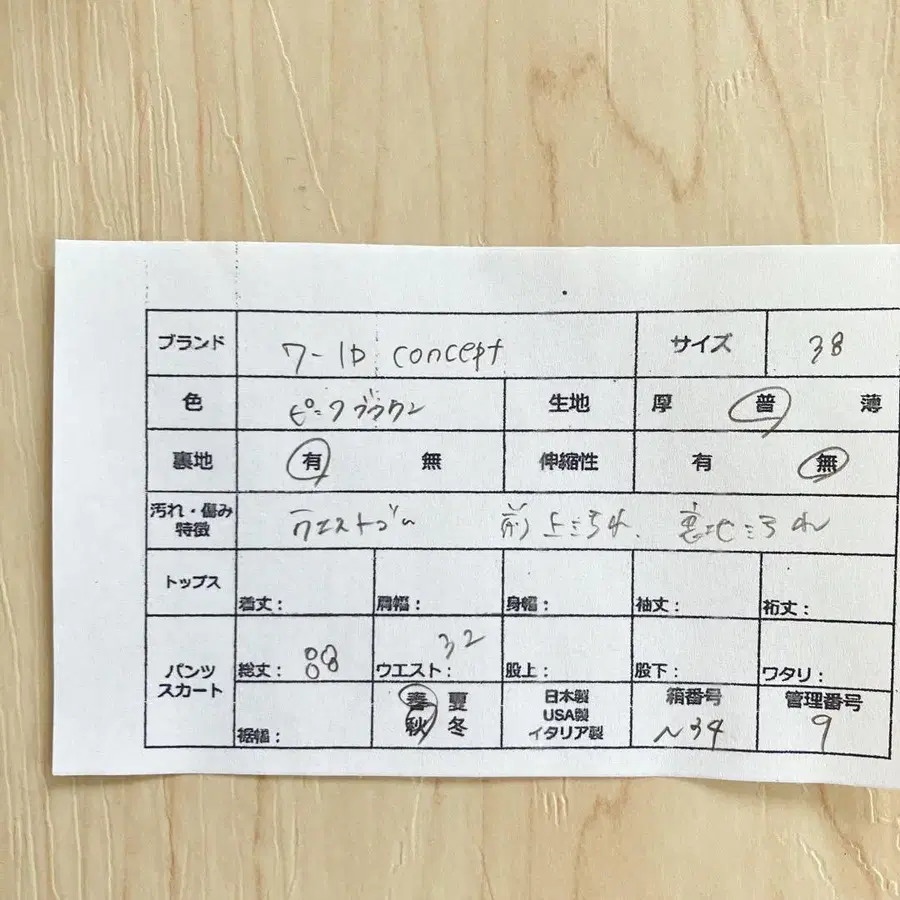 ブランド 7-ID concept サイズ 38
色 ピンクブラウン 生地 厚 普 薄
裏地 有 無 伸縮性 有 無
汚れ・傷み
特徴 ウエストゴム 前上ミ汚れ、裏地ミ汚れ
トップス 着丈： 肩幅： 身幅： 袖丈： 裄丈：
パンツ
スカート 総丈： 88 ウエスト： 32 股上： 股下： ワタリ：
裾幅： 春 夏
秋 冬 日本製
USA製
イタリア製 箱番号
N34 管理番号
9